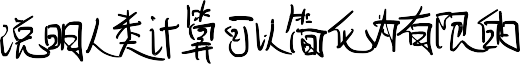 说明人类计算可以简化为有限的